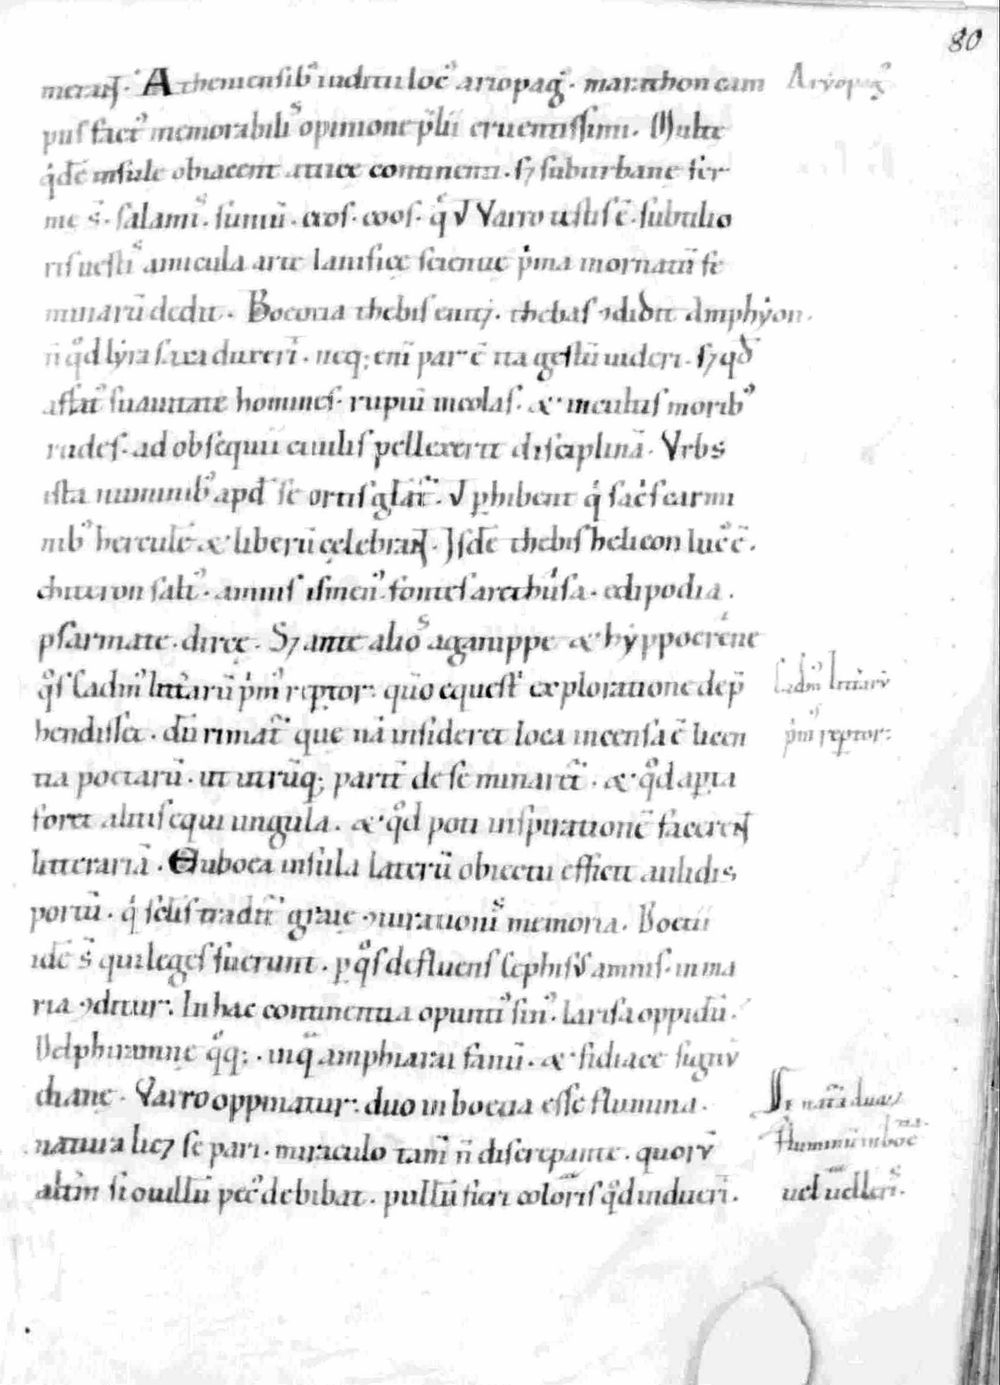 80
merar̄. Atheniensib' iudiciu' loc' ariopag'. marathon cam
pus fact' memorabilis opinione p̄lii cruentissimi. Multe
qͥdē insule obiacent attice continenti. sꝫ suburbane fer
me s̄. salamis. suniū. ceos. coos. q̄ ut Varro testis ē. subtilio
ris uestis amicula arte lanifice scientie pͥma in ornatū fe
minarū dedit. Boeotia thebis enitꝫ. thebas ꝯdidit Amphyon.
n̄ qͦd lyra saxa duxerit. neq; eni par ē ita gestū uideri. sꝫ qd̄
affat' suauitate homines. rupiū incolas. & incultis morib'
rudes. ad obsequiū ciuilis pellexerit disciplinā. Vrbs
ista numinib' apd̄ se ortis gl̄at. ut phibent qͥ sacͥs carmi
nib' herculē & liberū celebrar̄. Isdē thebis helicon luc' ē.
chiteron salt'. amnis ismen'. fontes arethusa. edipodia.
psarmate. dirce. Sꝫ ante alios aganippe & hyppocrene
qͦs Cadm' litterarū pͥm' reptor. qūo equestͥ exploratione dep̄
hendisset. dū rimat' que nā insideret loca incensa ē licen
tia poetarū. ut utrūq; parit' de se minaret'. & qͦd apta
foret alitis equi ungula. & qͦd poti inspirationē faceret
litterariā. Euboea insula laterū obiectu efficit aulidis
portū. qͥ seclis tradit' graie ꝯiurationis memoria. Boetii
idē s̄ qui leges fuerunt. p qͦs defluens Cephisus amnis. in ma
ria ꝯditur. In hac continentia opunti' sin'. Larisa oppidū.
Delphi ramne qͦq;. inq̄ amphiarai fanū. & fidiace signū
diane. Varro oppinatur. duo in boetia esse flumina.
natura licꝫ separi. miraculo tam̄ n̄ discrepante. quorū
altm̄ si ouillū pec' debibat. pullū fieri coloris qͦd induerit.
Aryopag'
Cadm' litterarū
pͥm' reptor.
De nat̄a duarū
fluminū in boe
tia.
uel uelleris.